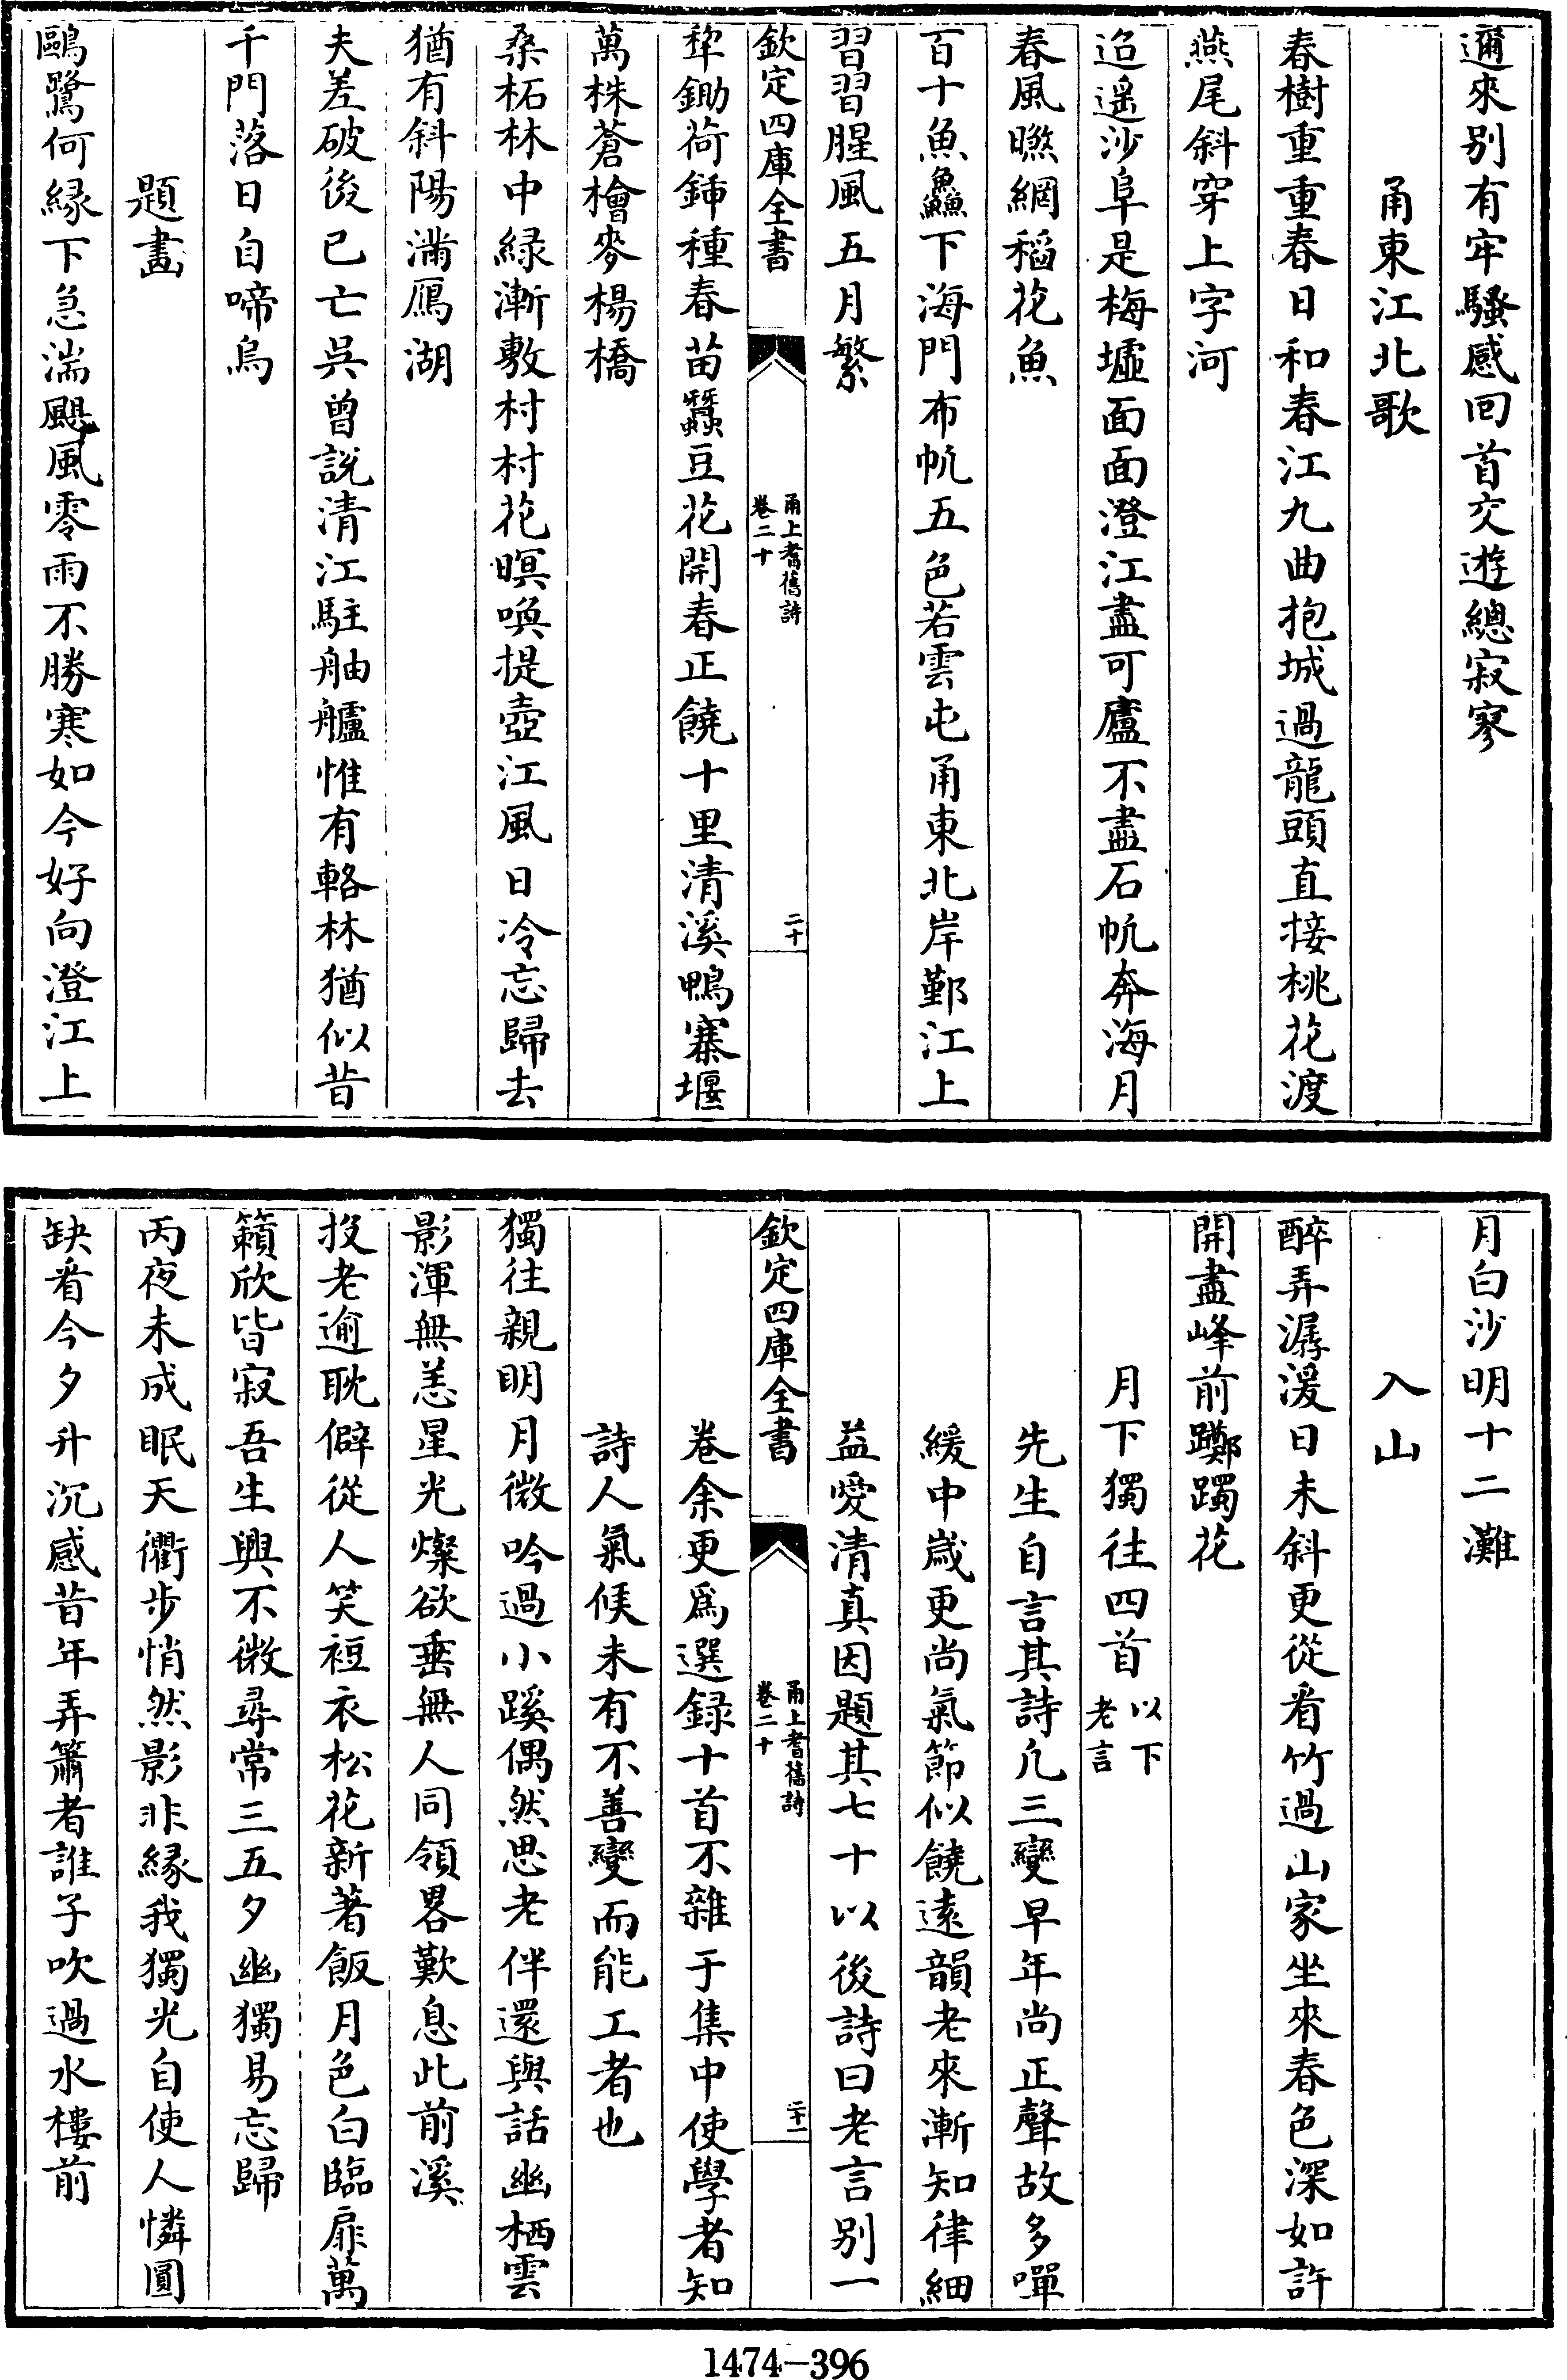 邇來别有牢騷感回首交遊總寂寥
甬東江北歌
春樹重重春日和春江九曲抱城過龍頭直接桃花渡
燕尾斜穿上字河
迢遥沙阜是梅墟面面澄江盡可廬不盡石帆奔海月
春風㬠網稻花魚
百十魚鱻下海門布帆五色若雲屯甬東北岸鄞江上
習習腥風五月繁
欽定四庫全書
甬上耆舊詩
卷二十
二十
犂鋤荷鍤種春苗蠶豆花開春正饒十里清溪鴨寨堰
萬株蒼檜麥楊橋
桑柘林中緑漸敷村村花暝喚提壺江風日冷忘歸去
猶有斜陽滿鴈湖
夫差破後已亡吳曾說清江駐舳艫惟有輅林猶似昔
千門落日自啼烏
題畫
鷗鷺何緣下急湍颶風零雨不勝寒如今好向澄江上
月白沙明十二灘
入山
醉弄潺湲日未斜更從看竹過山家坐來春色深如許
開盡峰前躑躅花
月下獨往四首
以下
老言
先生自言其詩凡三變早年尚正聲故多嘽
緩中歲更尚氣節似饒遠韻老來漸知律細
益愛清真因題其七十以後詩曰老言别一
欽定四庫全書
甬上耆舊詩
卷二十
二十一
卷余更爲選録十首不雜于集中使學者知
詩人氣候未有不善變而能工者也
獨往親明月微吟過小蹊偶然思老伴還與話幽栖雲
影渾無恙星光燦欲垂無人同領畧歎息此前溪
投老逾耽僻從人笑裋衣松花新著飯月色白臨扉萬
籟欣皆寂吾生興不微尋常三五夕幽獨易忘歸
丙夜未成眠天衢步悄然影非緣我獨光自使人憐圓
缺看今夕升沉感昔年弄簫者誰子吹過水樓前
1474-396